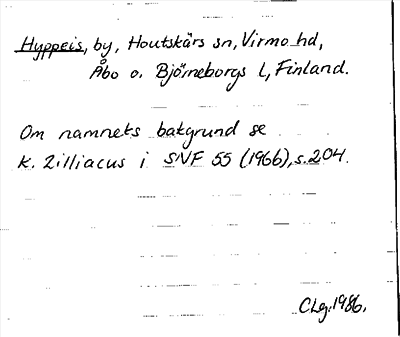 Hyppeis, by, Houtskärs sn, Virmo hd,
Åbo o. Björneborgs l, Finland.
Om namnets bakgrund se
K. Zilliacus i SNF 55 (1966), s. 204.
CLg. 1986.